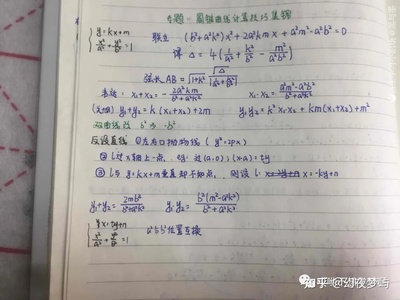 专题一 圆锥曲线计算技巧集锦
{ y=kx+m
x²/a²+y²/b²=1
联立 (b²+a²k²)x²+2a²kmx+a²m²-a²b²=0
Δ=4(1/a²+k²/b²-m²/a²b²)
弦长AB=√(1+k²)
韦达: x₁+x₂=-2a²km/(b²+a²k²) x₁·x₂=(a²m²-a²b²)/(b²+a²k²)
y₁+y₂=k(x₁+x₂)+2m y₁y₂=k²x₁x₂+km(x₁+x₂)+m²
双曲线改 b²为-b²
反设直线 ①左右口抛物线(y²=2px)
②l过x轴上一点, 如: 过(a,0); (x-a)=ty
③l与y=kx+m垂直却不知点, 则设l: x=-ky+n
y₁+y₂=2mb²/(b²+a²k²) y₁·y₂=b²(m²-a²k²)/(b²+a²k²)
{ x=ty+n
x²/a²+y²/b²=1
a²与b²位置互换
知乎 @幻夜梦屿